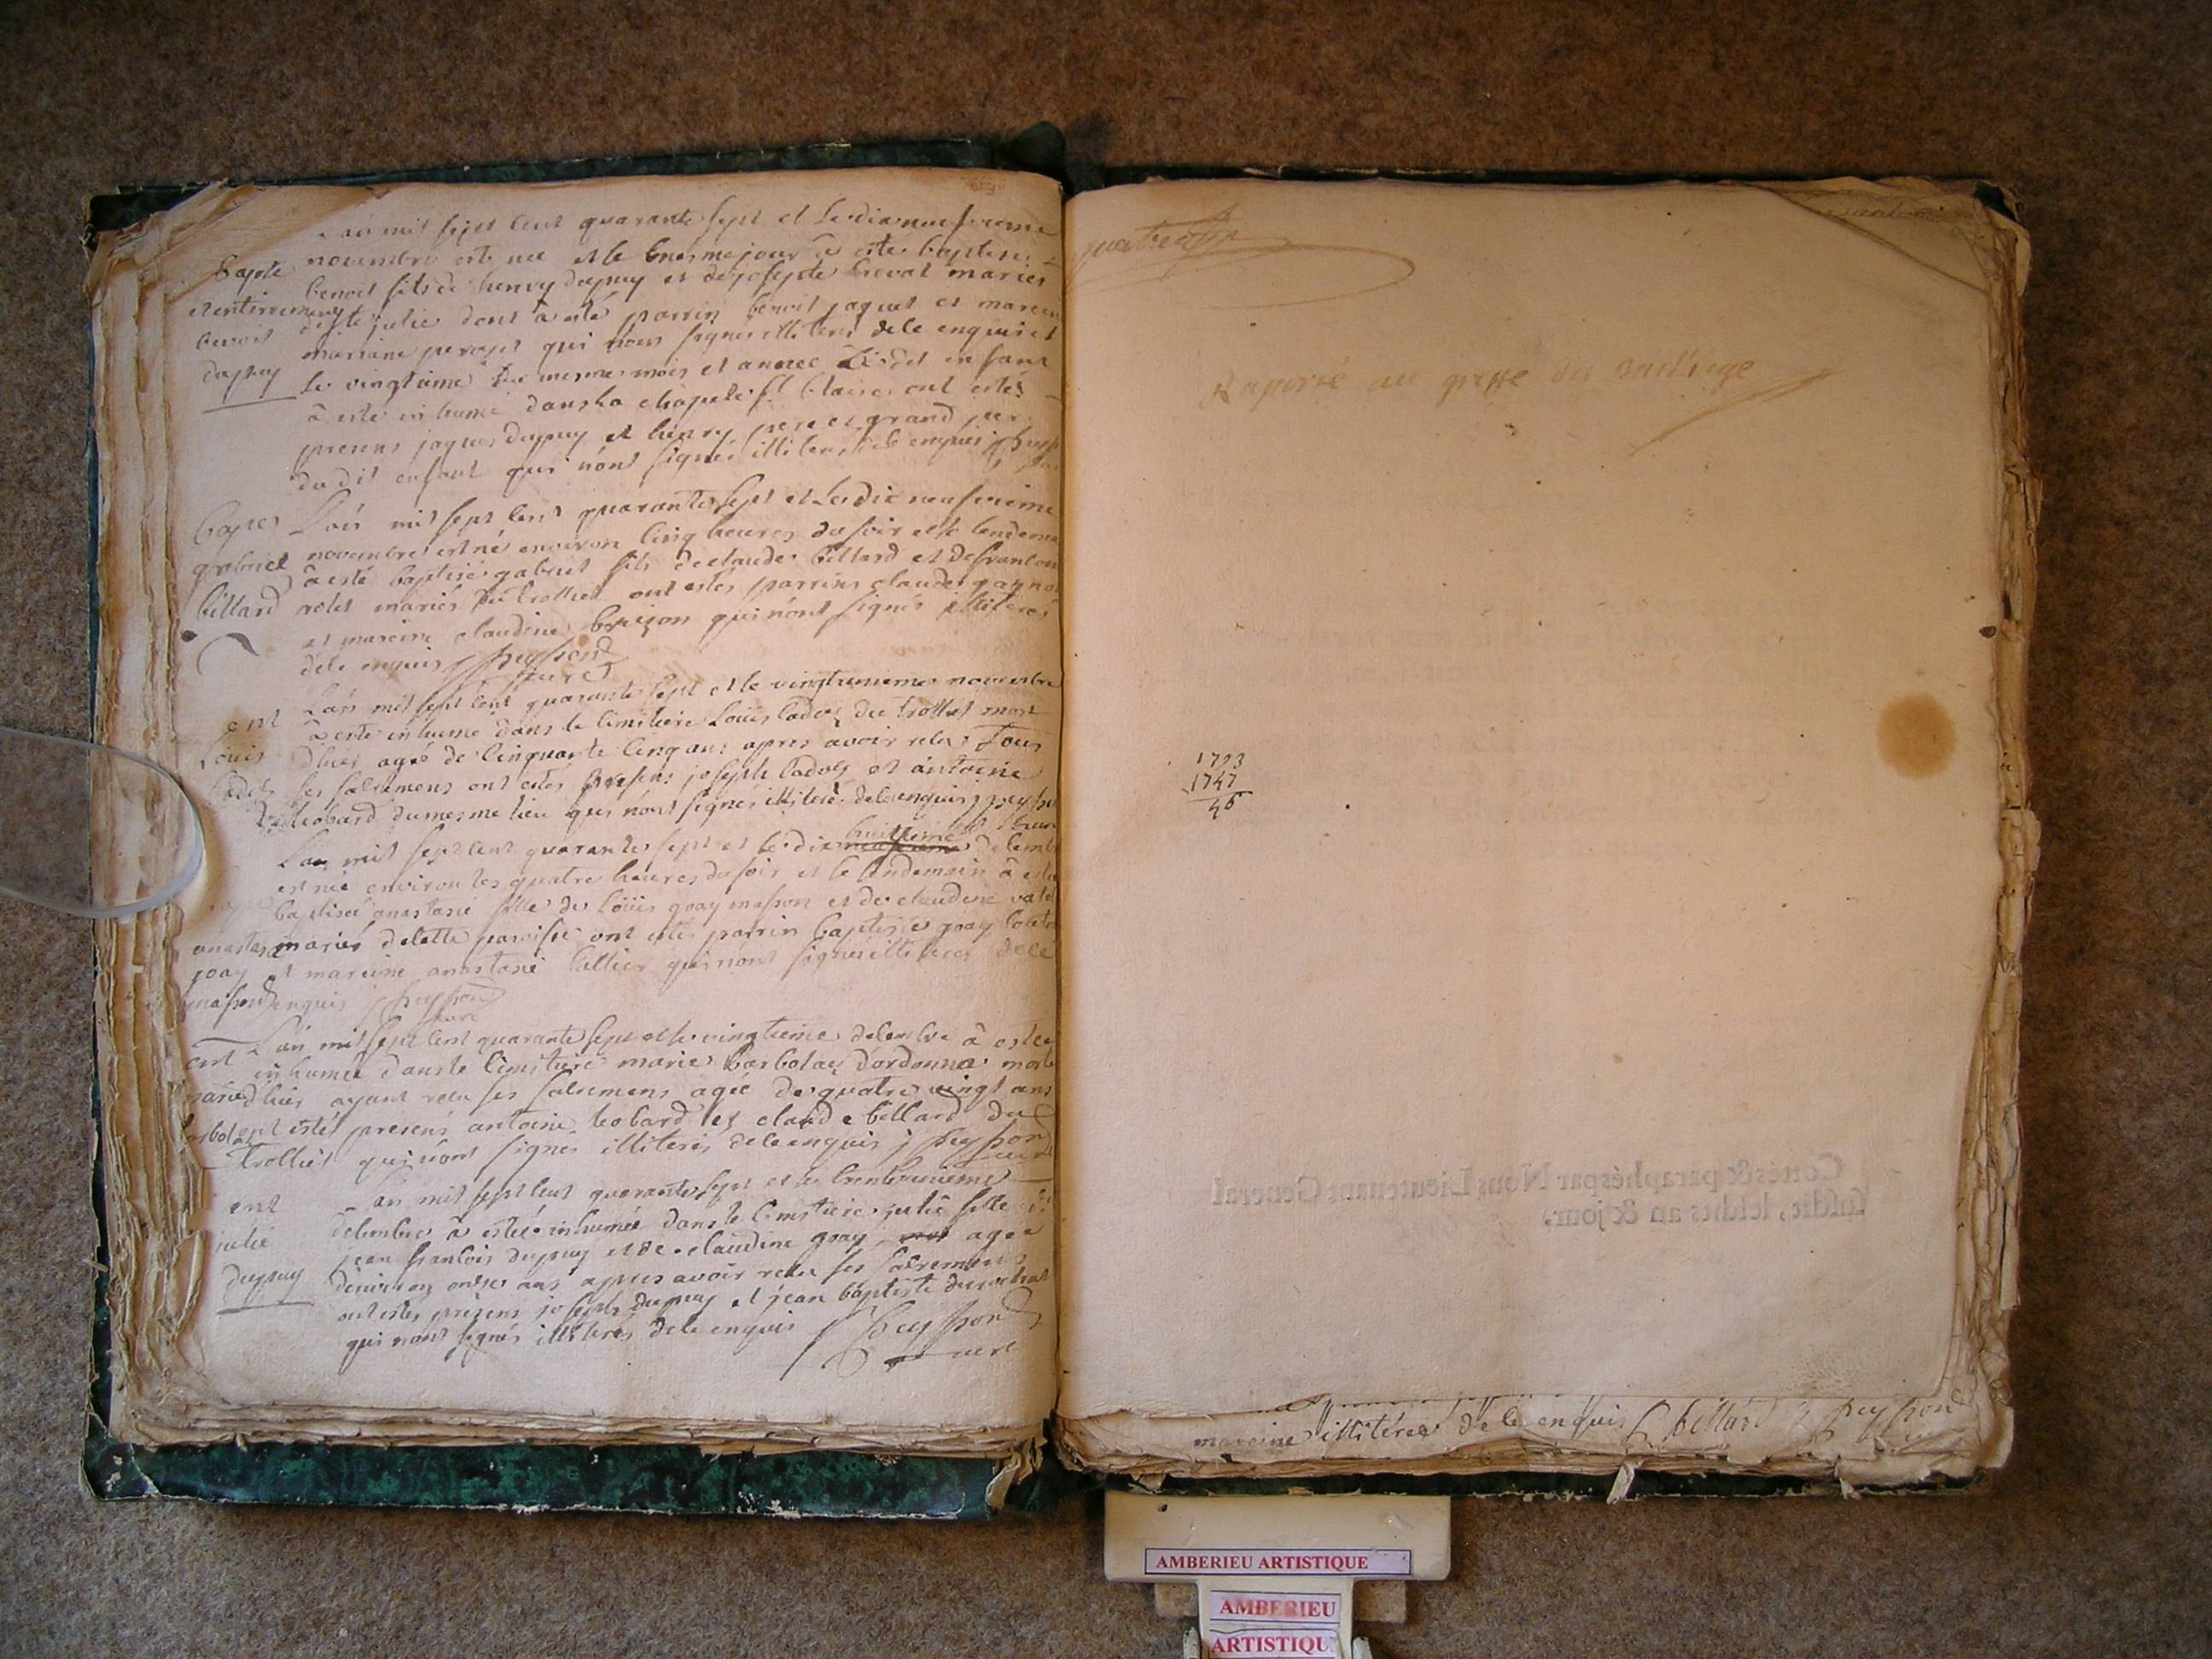 L'an mil sept cent quarante sept et le dixneufvieme
novembre est né et le mesme jour à esté baptisé
bapte
benoit fils de henry dupuy et de josepte mariés
et entirrement
de ste julie dont à esté parrin benoit jaquet et mareine
benoit
mariane qui n'ont signés illiterés de ce enquis et
dupuy
le vingtieme du mesme mois et année le dit enfant
à esté inhumé dans la chapele st blaise ont estés
presens jaques dupuy et henry pere et grand per
du dit enfant qui n'ont signés illiterés de ce enquis
bapte L'an mil sept cent quarante sept et le dix neufvieme
gabriel novembre est né environ cinq heures du soir et le lendemain
à esté baptisé gabriel fils de claude billard et de francoise
billard mariés du trolliet ont estés parrins claude
et mareine claudine qui n'ont signés illiterés
de ce enquis j heysson
curé
L'an mil sept cent quarante sept et le vingtunieme novembre
ent à esté inhumé dans le cimitiere Loüis cadoz du trolliet mort
Loüis d'hier agé de cinquante cinq ans apres avoir recu tous
cadoz ses sacremens ont estés presens joseph cadoz et antoine
leobard du mesme lieu qui n'ont signés illiterés de ce enquis j heysson
curé
huittieme
L'an mil sept cent quarante sept et le dix neufvieme decembre
est née environ les quatre heures du soir et le lendemain à esté
baptisée anastasie fille de Loüis goay masson et de claudine
anastasie mariés de cette paroisse ont estés parrin baptiste goay
goay et mareine anastasie qui n'ont signés illiterés de ce
masson enquis j heysson
curé
ent L'an mil sept cent quarante sept et le vingtieme decembre à estée
inhumée dans le cimitiere marie barbolaz d'ordonnaz morte
marie d'hier ayant recu ses sacremens agée de quatre vingt ans
barbolaz ont estés presens antoine leobard et claude billard du
trolliet qui n'ont signés illiterés de ce enquis j heysson
curé
ent L'an mil sept cent quarante sept et le trentunieme
decembre à estée inhumée dans le cimitiere julie fille de
julie
jean francois dupuy et de claudine goay agée
dupuy
d'environ onze ans apres avoir recu ses sacremens
ont estés presens joseph dupuy et jean baptiste
qui n'ont signés illiterés de ce enquis j heysson
curé
Raporté au greffe du bailliage
1793
1747
46
Cottés & paraphés par Nous Lieutenant General
susdit, lesdits an & jour.
mareine illiterée de ce enquis C billard j heysson
AMBERIEU ARTISTIQUE
AMBERIEU
ARTISTIQU